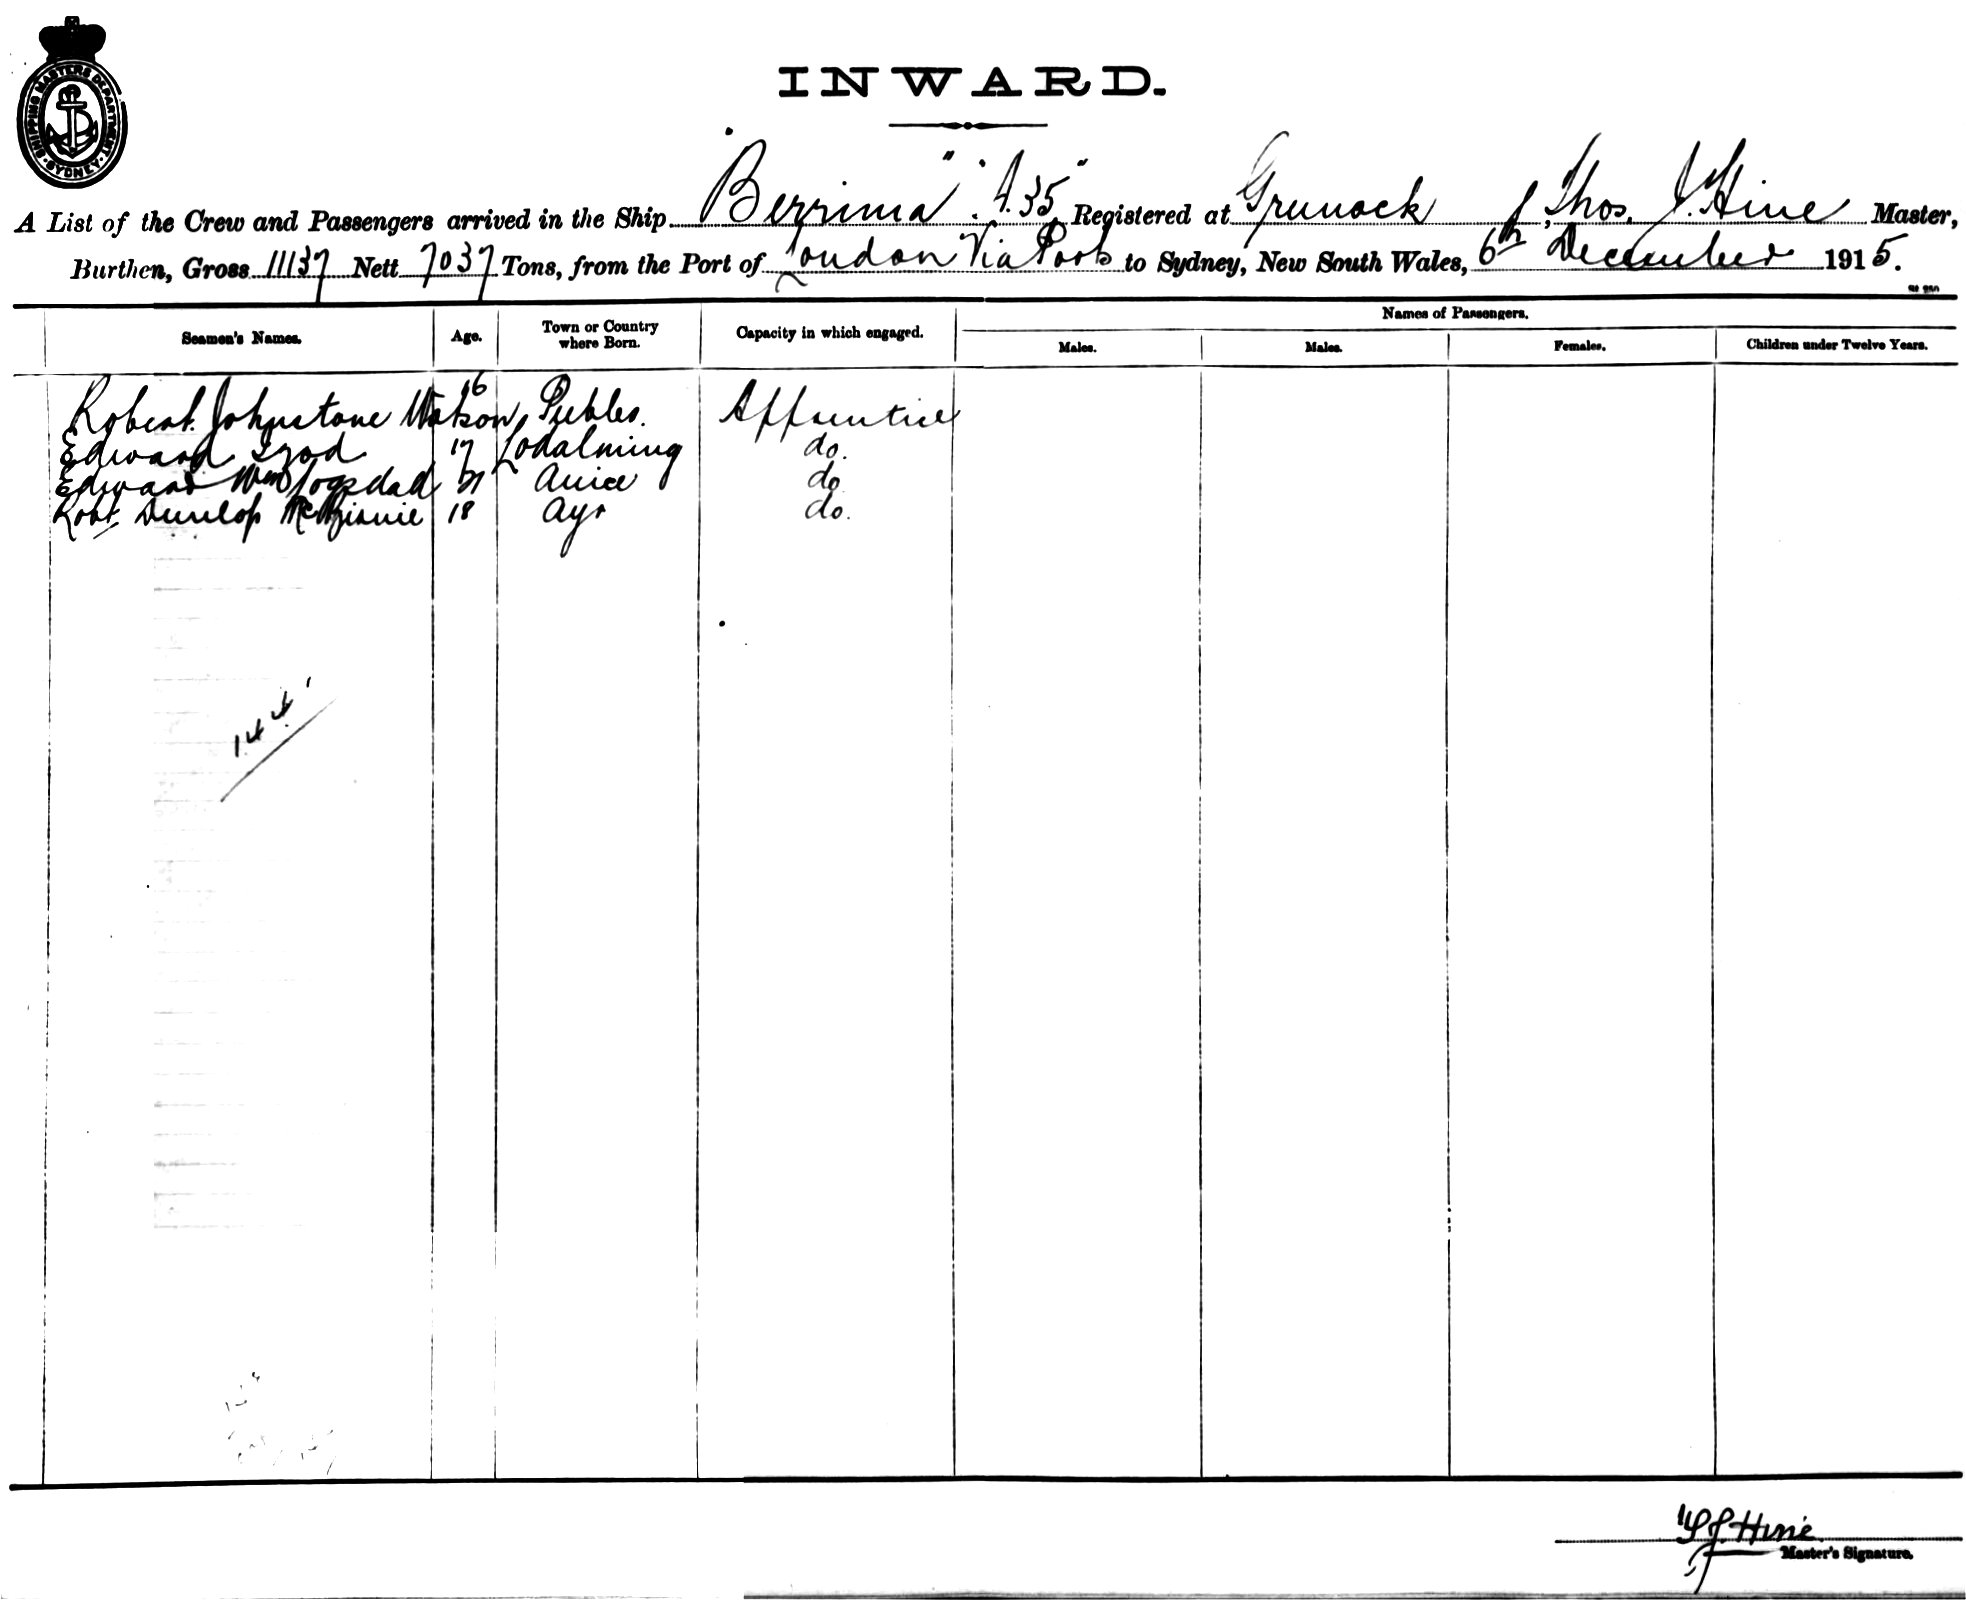 SHIPPING MASTERS DEPARTMENT SYDNEY
INWARD.
A List of the Crew and Passengers arrived in the Ship "Berrima" "A.35" Registered at Greenock, Thos. J. Hine Master,
Burthen, Gross 11137 Nett 7037 Tons, from the Port of London Via Ports to Sydney, New South Wales, 6th December 1915.
Seamen's Names. Age. Town or Country where Born. Capacity in which engaged. Names of Passengers.
Males. Males. Females. Children under Twelve Years.
Robert Johnstone Watson 16 Peebles. Apprentice
Edward Izod 17 Godalming do.
Edward Wm 21 do
Robt Dunlop 18 Ayr do.
144
T J Hine
Master's Signature.